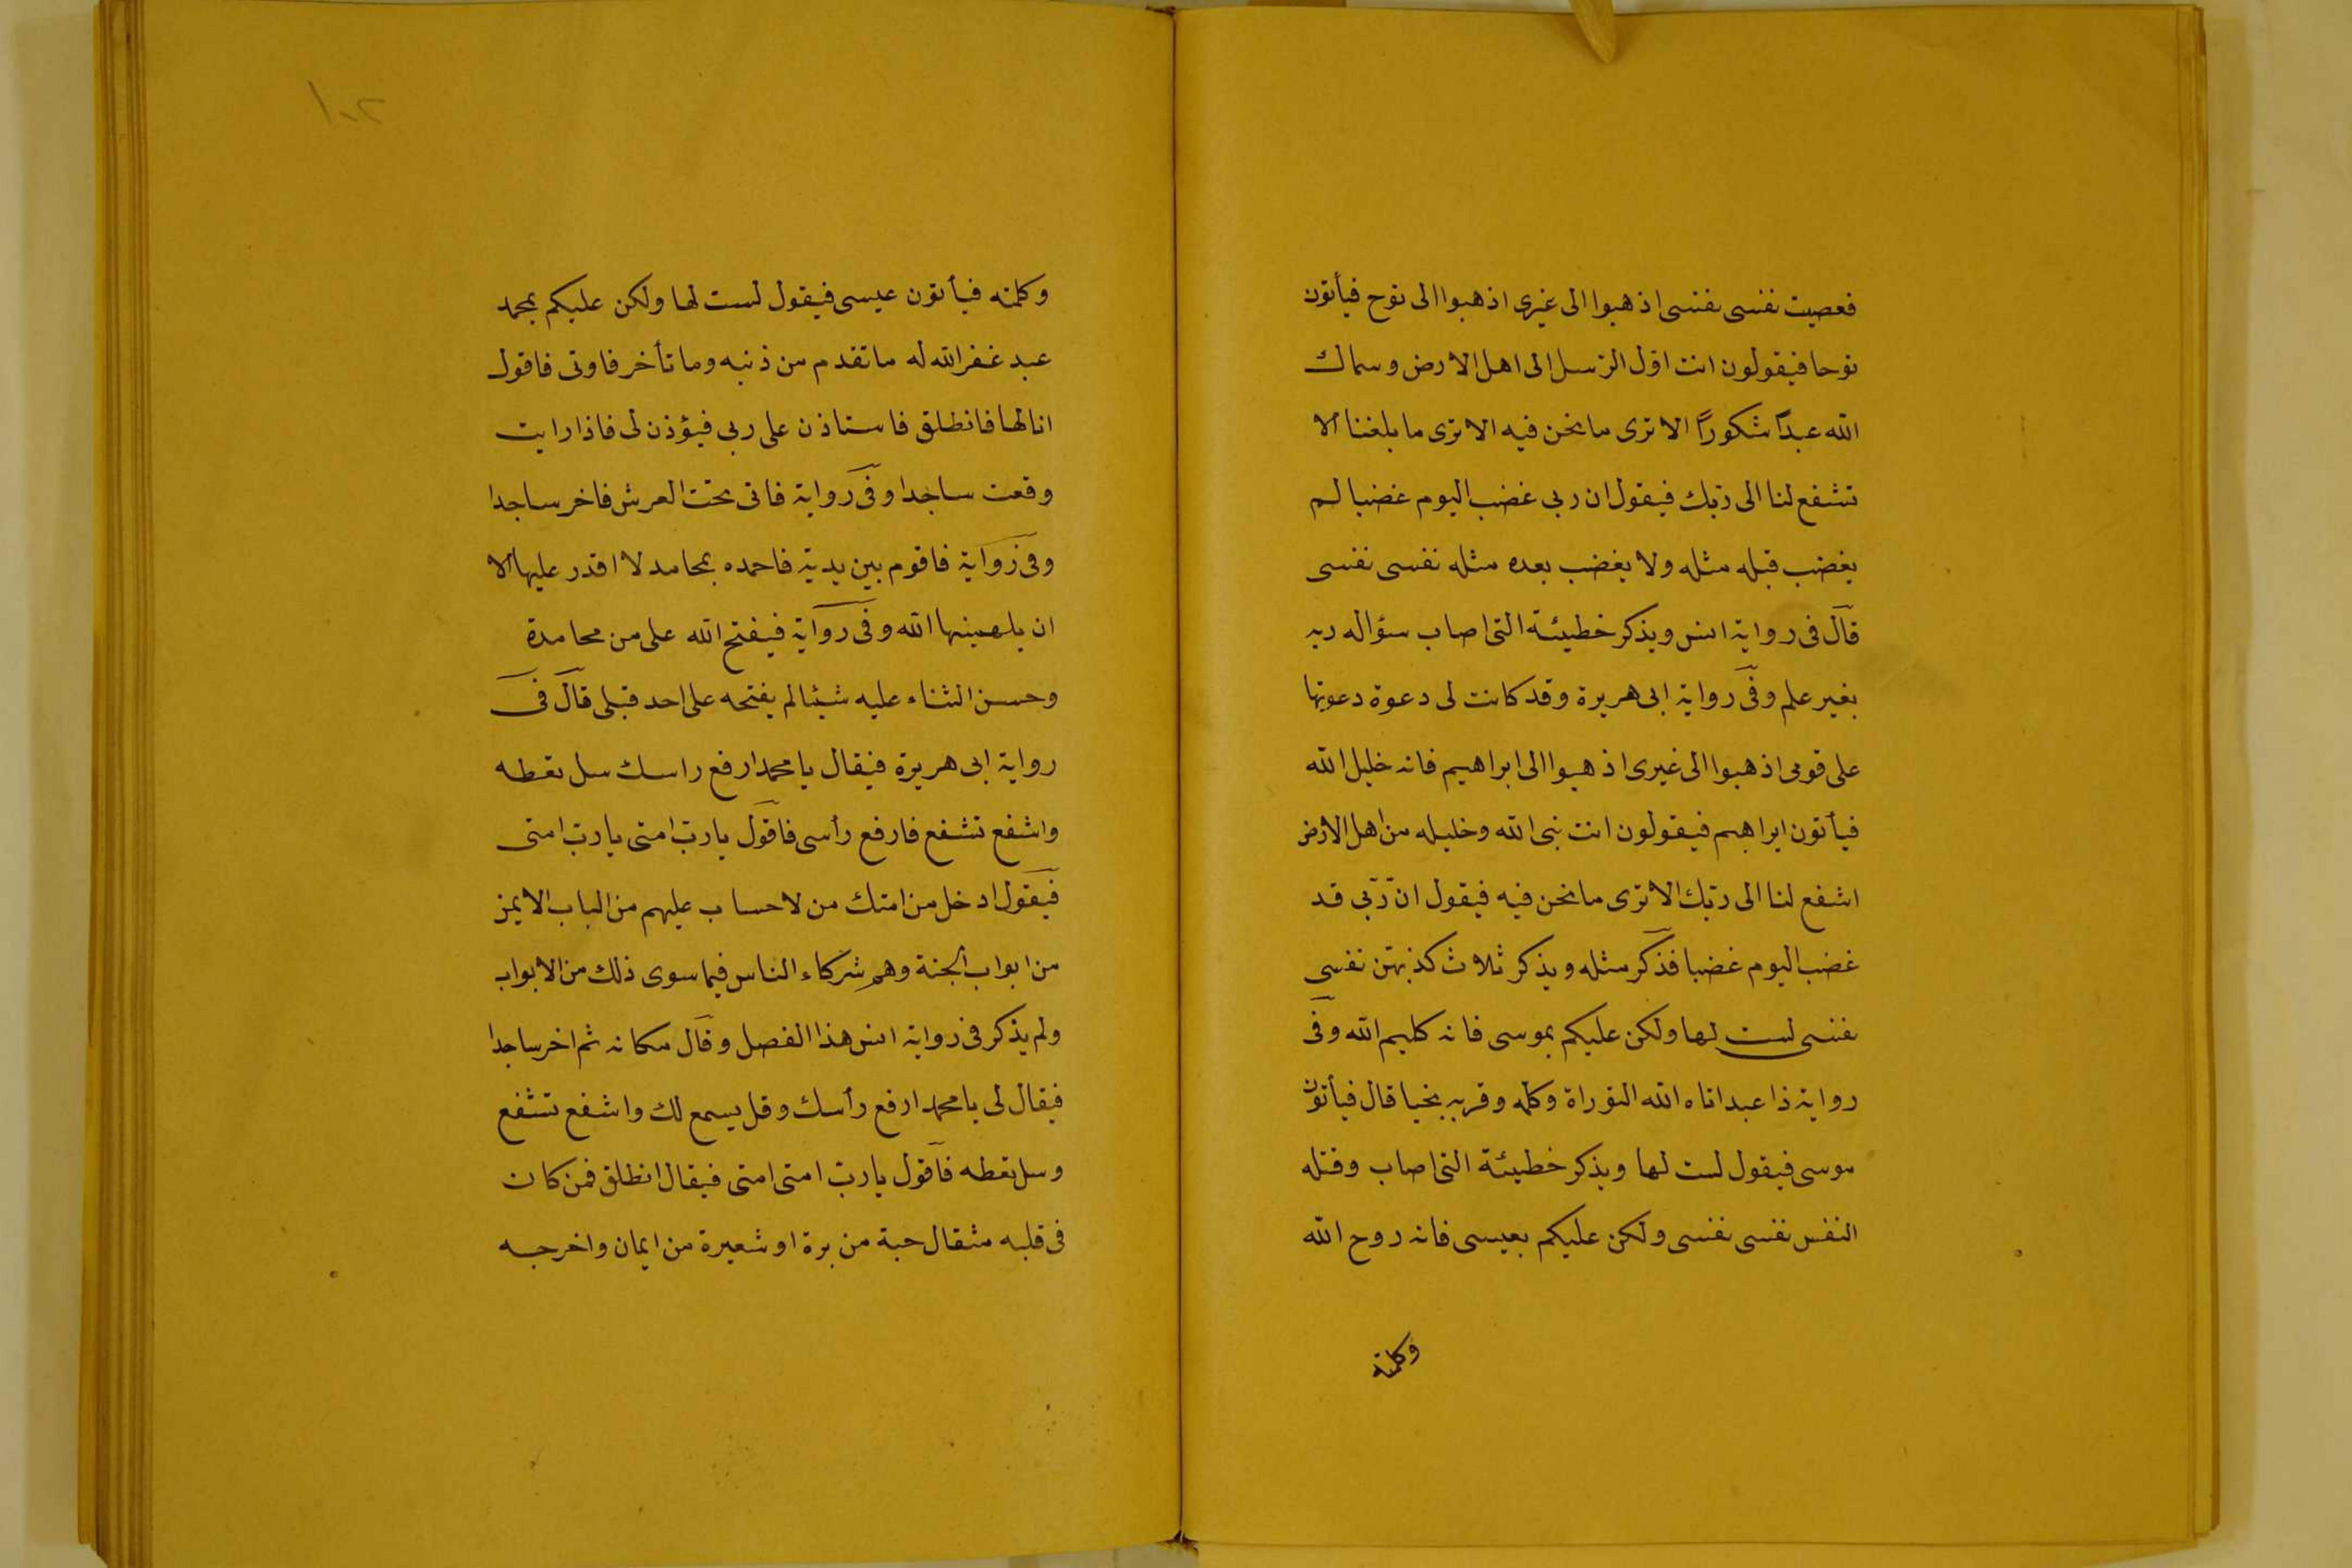 فعصيت نفسى نفسى اذهبوا الى غيرى اذهبوا الى نوح فيأتون
نوحا فيقولون انت اول الرسل الى اهل الارض وسماك
الله عبدًا شكورًا الا ترى ما نحن فيه الا ترى ما بلغنا الا
تشفع لنا الى ربك فيقول ان ربى غضب اليوم غضبا لم
يغضب قبله مثله ولا يغضب بعده مثله نفسى نفسى
قال فى رواية انس ويذكر خطيئة التى اصاب سؤاله ربه
بغير علم وفى رواية ابى هريرة وقد كانت لى دعوة دعوتها
على قومى اذهبوا الى غيرى اذهبوا الى ابراهيم فانه خليل الله
فيأتون ابراهيم فيقولون انت نبى الله وخليله من اهل الارض
اشفع لنا الى ربك الا ترى ما نحن فيه فيقول انّ ربّى قد
غضب اليوم غضبا فذكر مثله ويذكر ثلاث كذبهن نفسى
نفسى لست لها ولكن عليكم بموسى فانه كليم الله وفى
رواية ذا عبد اتاه الله التوراة وكلمه وقربه نجيا قال فيأتون
موسى فيقول لست لها ويذكر خطيئة التى اصاب وقتله
النفس نفسى نفسى ولكن عليكم بعيسى فانه روح الله
وكلمته
١٠٢
وكلمته فيأتون عيسى فيقول لست لها ولكن عليكم بمحمد
عبد غفر الله له ما تقدم من ذنبه وما تأخر فاوتى فاقول
انا لها فانطلق فاستاذن على ربى فيؤذن لى فاذا رايت
وقعت ساجدا وفى رواية فاتى تحت العرش فاخر ساجدا
وفى رواية فاقوم بين يديه فاحمده بمحامد لا اقدر عليها الا
ان يلهمنيها الله وفى رواية فيفتح الله على من محامدة
وحسن الثناء عليه شيئا لم يفتحه على احد قبلى قال فى
رواية ابى هريرة فيقال يا محمد ارفع راسك سل تعطه
واشفع تشفع فارفع رأسى فاقول يا ربّ امتى يا ربّ امتى
فيقول ادخل من امتك من لا حساب عليهم من الباب الايمن
من ابواب الجنة وهم شركاء الناس فيما سوى ذلك من الابواب
ولم يذكر فى رواية انس هذا الفصل وقال مكانه ثم اخر ساجدا
فيقال لى يا محمد ارفع رأسك وقل يسمع لك واشفع تشفع
وسل تعطه فاقول يا ربّ امتى امتى فيقال انطلق فمن كان
فى قلبه مثقال حبة من برة او شعيرة من ايمان واخرجه